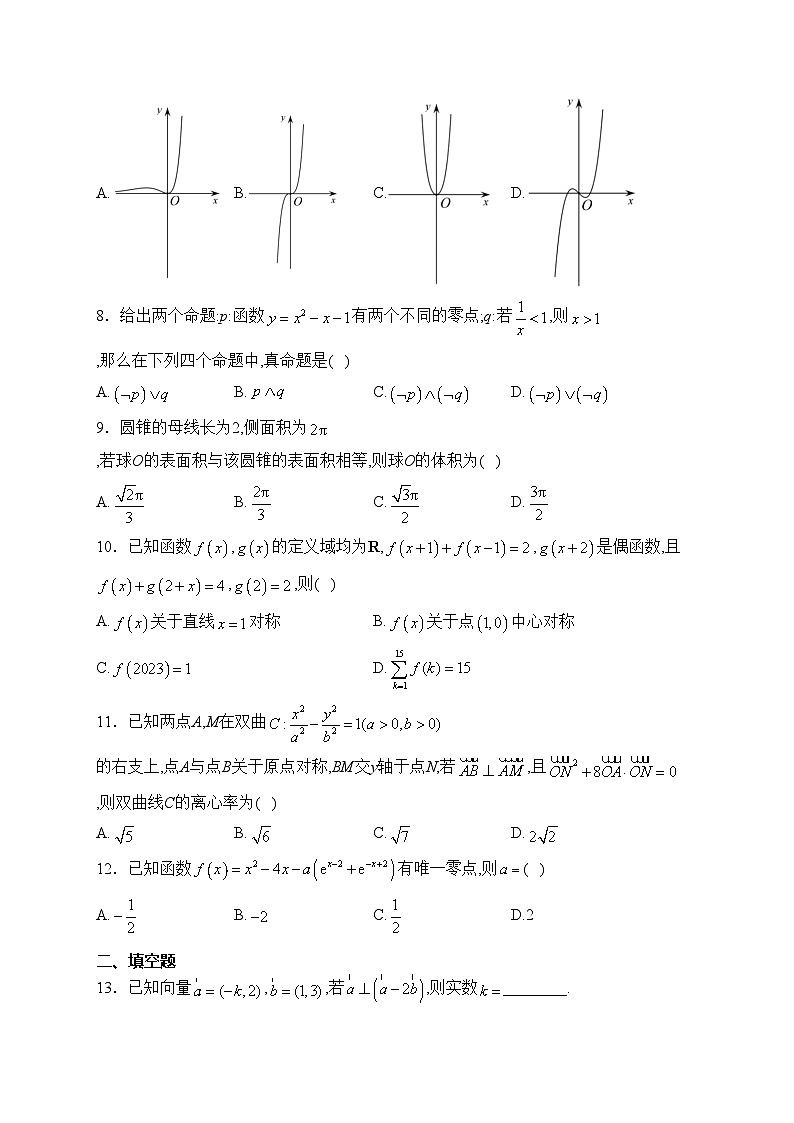 y y y y
A. O x B. O x C. O x D. O x
8．给出两个命题:p:函数 y = x² − x − 1有两个不同的零点;q:若 1/x < 1,则 x > 1
,那么在下列四个命题中,真命题是( )
A. (¬p)∨q B. p∧q C. (¬p)∧(¬q) D. (¬p)∨(¬q)
9．圆锥的母线长为2,侧面积为 2π
,若球O的表面积与该圆锥的表面积相等,则球O的体积为( )
A. √2π/3 B. 2π/3 C. √3π/2 D. 3π/2
10．已知函数 f(x) , g(x) 的定义域均为R, f(x+1)+f(x−1)=2 , g(x+2) 是偶函数,且
f(x)+g(2+x)=4 , g(2)=2 ,则( )
A. f(x) 关于直线 x=1 对称 B. f(x) 关于点 (1,0) 中心对称
C. f(2023)=1 D. ∑_{k=1}^{15} f(k)=15
11．已知两点A,M在双曲 C: x²/a² − y²/b² = 1(a>0,b>0)
的右支上,点A与点B关于原点对称,BM交y轴于点N,若 AB ⊥ AM ,且 ON² +8OA·ON = 0
,则双曲线C的离心率为( )
A. √5 B. √6 C. √7 D. 2√2
12．已知函数 f(x)=x²−4x−a(e^{x−2}+e^{−x+2}) 有唯一零点,则 a = ( )
A. −1/2 B. −2 C. 1/2 D.2
二、填空题
13．已知向量 a=(−k,2) , b=(1,3) ,若 a⊥(a−2b) ,则实数 k = ________.